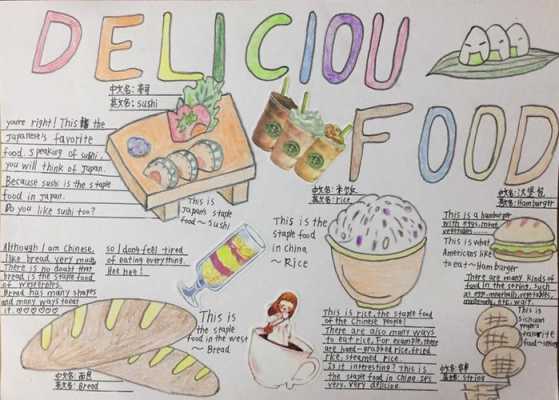 DELICIOU
FOOD
中文名：寿司
英文名：sushi
you're right! This is the
Japanese's favorite
food. speaking of sushi,
you will think of Japan.
Because sushi is the staple
food in Japan.
Do you like sushi too?
This is
Japan's staple
food ~ sushi
Although I am Chinese,
I like bread very much.
There is no doubt that
bread is the staple food
of westerners.
Bread has many shapes
and many ways to eat
it.
so I don't feel tired
of eating everything.
Hee hee!
This is
the staple
food in the west
~ Bread
中文名：面包
英文名：Bread
This is the
staple food
in China
~ Rice
中文名：米饭
英文名：rice
This is rice, the staple food
of the Chinese people!
There are also many ways
to eat rice. For example, there
are hand-grabbed rice, fried
rice, steamed rice.
Is it interesting? This is
the staple food in China. It's
very, very delicious.
中文名：汉堡包
英文名：Hamburger
This is a hamburger
with eggs, meat,
vegetables
This is what
Americans like
to eat ~ Hamburger
There are many kinds of
food in the string, such
as egg, meatballs, vegetables,
This is
Sichuan
people's
favourite
food ~ string
英文名：String